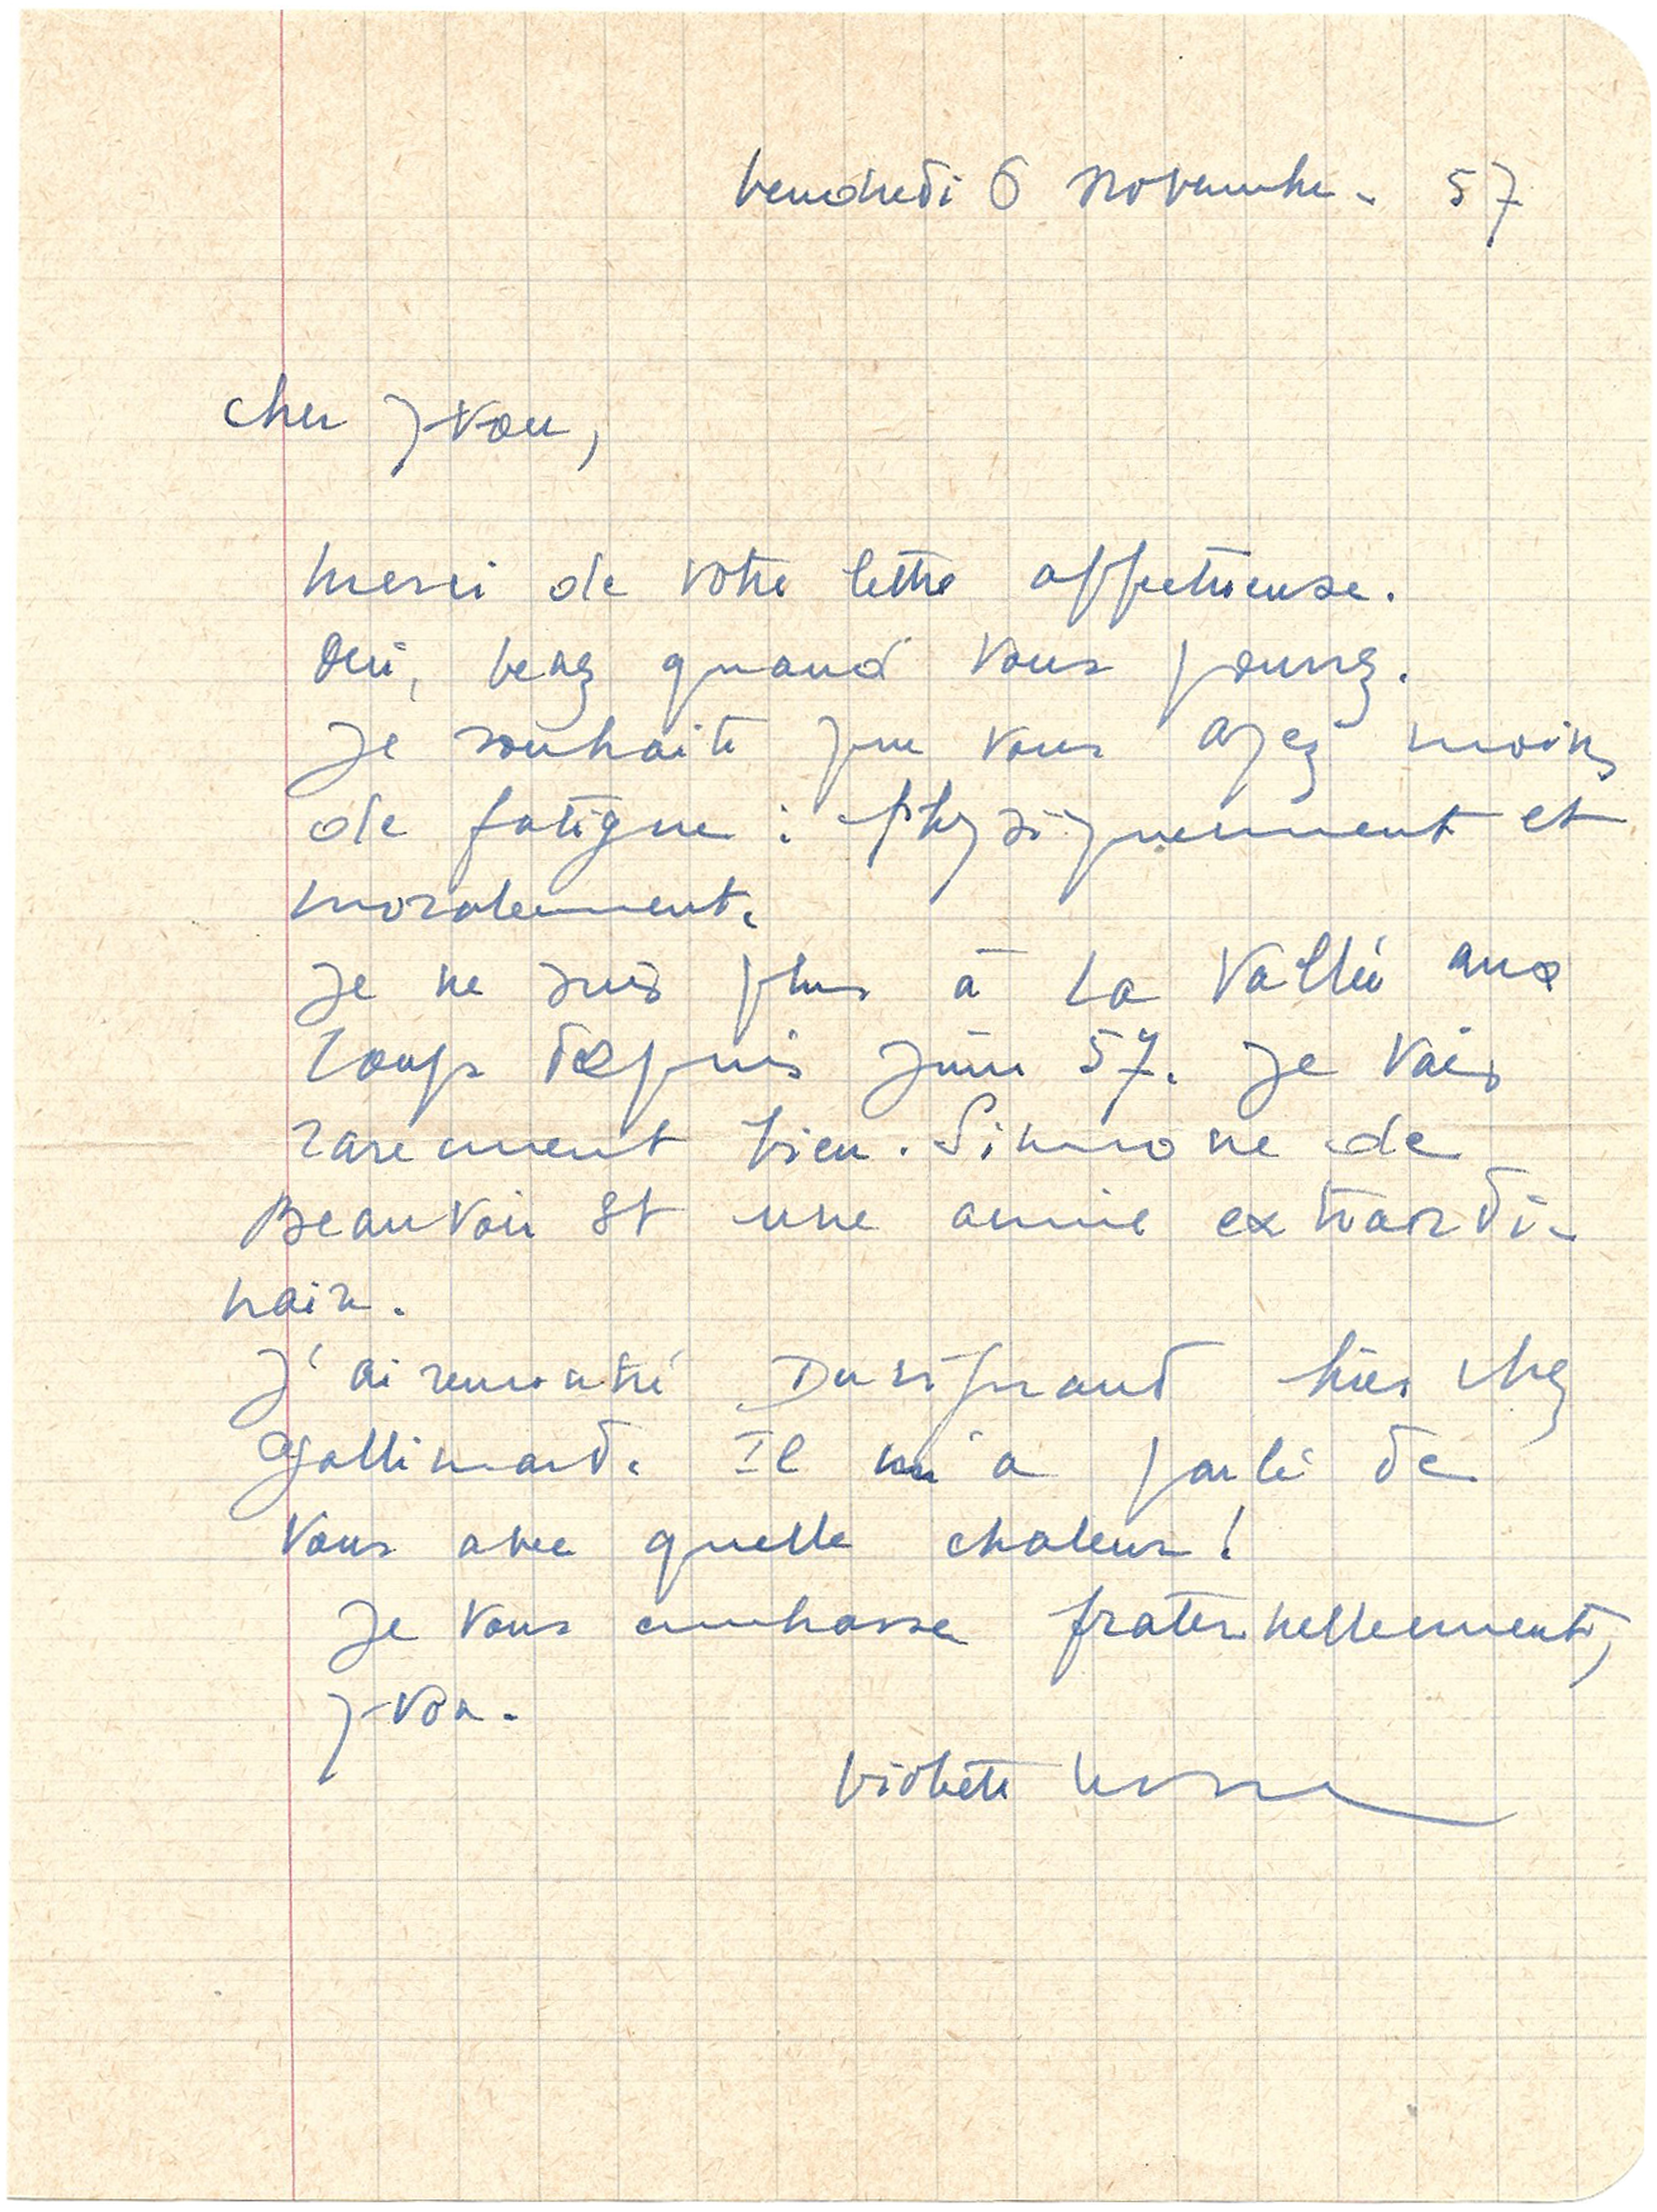 vendredi 6 novembre - 57
cher Yvon,
merci de votre lettre affectueuse.
oui, venez quand vous pourrez.
Je souhaite que vous ayez moins
de fatigue : physiquement et
moralement.
Je ne suis plus à La Vallée aux
Loups depuis Juin 57. Je vais
rarement bien. Simone de
Beauvoir est une amie extraordi-
naire.
J'ai rencontré hier chez
Gallimard. Il m'a parlé de
vous avec quelle chaleur !
Je vous embrasse fraternellement,
Yvon.
Violette